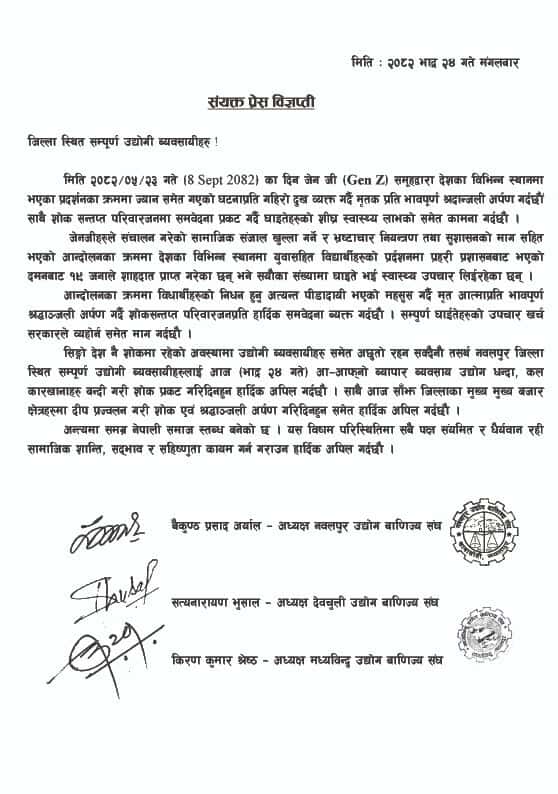 मिति : २०८२ भाद्र २४ गते मंगलबार
संयक्त प्रेस विज्ञप्ती
जिल्ला स्थित सम्पूर्ण उद्योगी ब्यवसायीहरु !
मिति २०८२/०५/२३ गते (8 Sept 2082) का दिन जेन जी (Gen Z) समूहद्वारा देशका विभिन्न स्थानमा
भएका प्रदर्शनका क्रममा ज्यान समेत गएको घटनाप्रति गहिरो दुख व्यक्त गर्दै मृतक प्रति भावपूर्ण श्रदाञ्जली अर्पण गर्दछौं
साथै शोक सन्तप्त परिवारजनमा समवेदना प्रकट गर्दै घाइतेहरुको शीघ्र स्वास्थ्य लाभको समेत कामना गर्दछौ ।
जेनजीहरुले संचालन गरेको सामाजिक संजाल खुल्ला गर्ने र भ्रष्टाचार नियन्त्रण तथा सुशासनको माग सहित
भएको आन्दोलनका क्रममा देशका विभिन्न स्थानमा युवासहित विद्यार्थीहरुको प्रर्दशनमा प्रहरी प्रशासनबाट भएको
दमनबाट १९ जनाले शाहदात प्राप्त गरेका छन् भने सयौका संख्यामा घाइते भई स्वास्थ्य उपचार लिईरहेका छन् ।
आन्दोलनका क्रममा विधार्थीहरुको निधन हुनु अत्यन्त पीडादायी भएको महसुस गर्दै मृत आत्माप्रति भावपूर्ण
श्रद्धाञ्जली अर्पण गर्दै शोकसन्तप्त परिवारजनप्रति हार्दिक समवेदना व्यक्त गर्दछौ । सम्पुर्ण घाईतेहरुको उपचार खर्च
सरकारले व्यहोर्न समेत माग गर्दछौ ।
सिङ्गो देश नै शोकमा रहेको अवस्थामा उद्योगी ब्यवसायीहरु समेत अछुतो रहन सक्दैनौ तसर्थ नवलपुर जिल्ला
स्थित सम्पूर्ण उद्योगी ब्यवसायीहरुलाई आज (भाद्र २४ गते) आ-आफ्नो ब्यापार ब्यवसाय उद्योग धन्दा, कल
कारखानाहरु बन्दी गरी शोक प्रकट गरिदिनहुन हार्दिक अपिल गर्दछौ । साथै आज साँझ जिल्लाका मुख्य मुख्य बजार
क्षेत्रहरुमा दीप प्रज्वलन गरी शोक एवं श्रद्धाञ्जली अर्पण गरिदिनहुन समेत हार्दिक अपिल गर्दछौ ।
अन्त्यमा समग्र नेपाली समाज स्तब्ध बनेको छ । यस विषम परिस्थितिमा सबै पक्ष संयमित र धैर्यवान रही
सामाजिक शान्ति, सद्भाव र सहिष्णुता कायम गर्न गराउन हार्दिक अपिल गर्दछौ ।
बैकुण्ठ प्रसाद अर्याल - अध्यक्ष नवलपुर उद्योग बाणिज्य संघ
सत्यनारायण भुसाल - अध्यक्ष देवचुली उद्योग बाणिज्य संघ
किरण कुमार श्रेष्ठ - अध्यक्ष मध्यविन्दु उद्योग बाणिज्य संघ